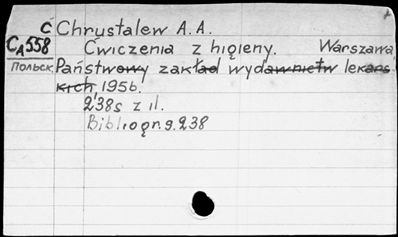 C Chrustalew A. A.
CA558 Ćwiczenia z higieny. Warszawa
Польск. Państwowy zakład wydawnictw lekars
kich 1956.
238s z il.
Bibliogr. s. 238